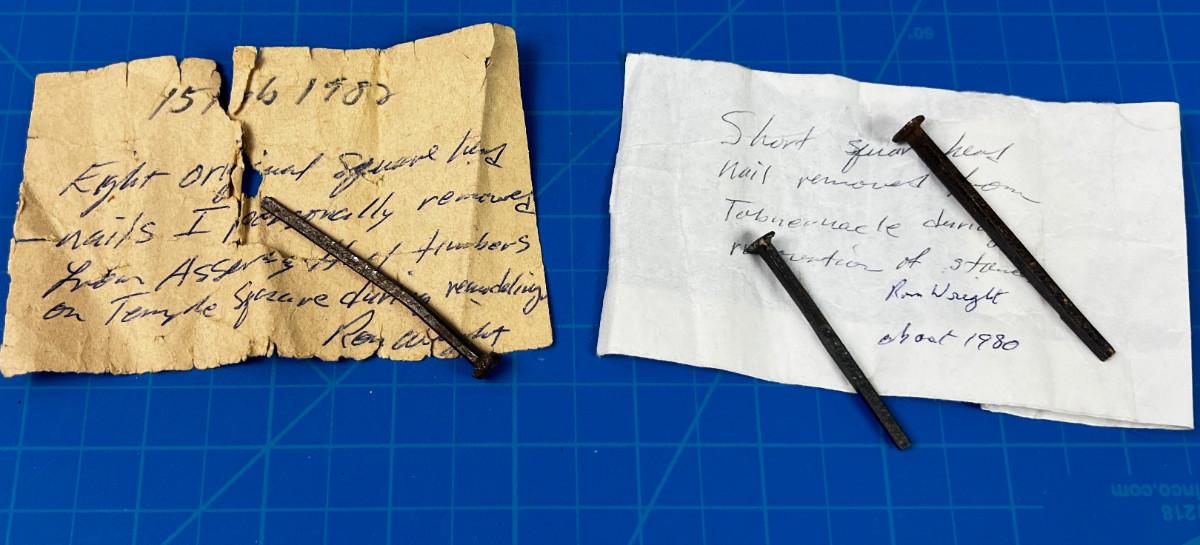 15 Feb 1982
Eight original square head
nails I personally removed
from Assembly Hall timbers
on Temple Square during remodeling
Ron Wright
Short square head
nail removed from
Tabuernacle during
renovation of stand
Ron Wright
about 1980
60°
nco.com
218